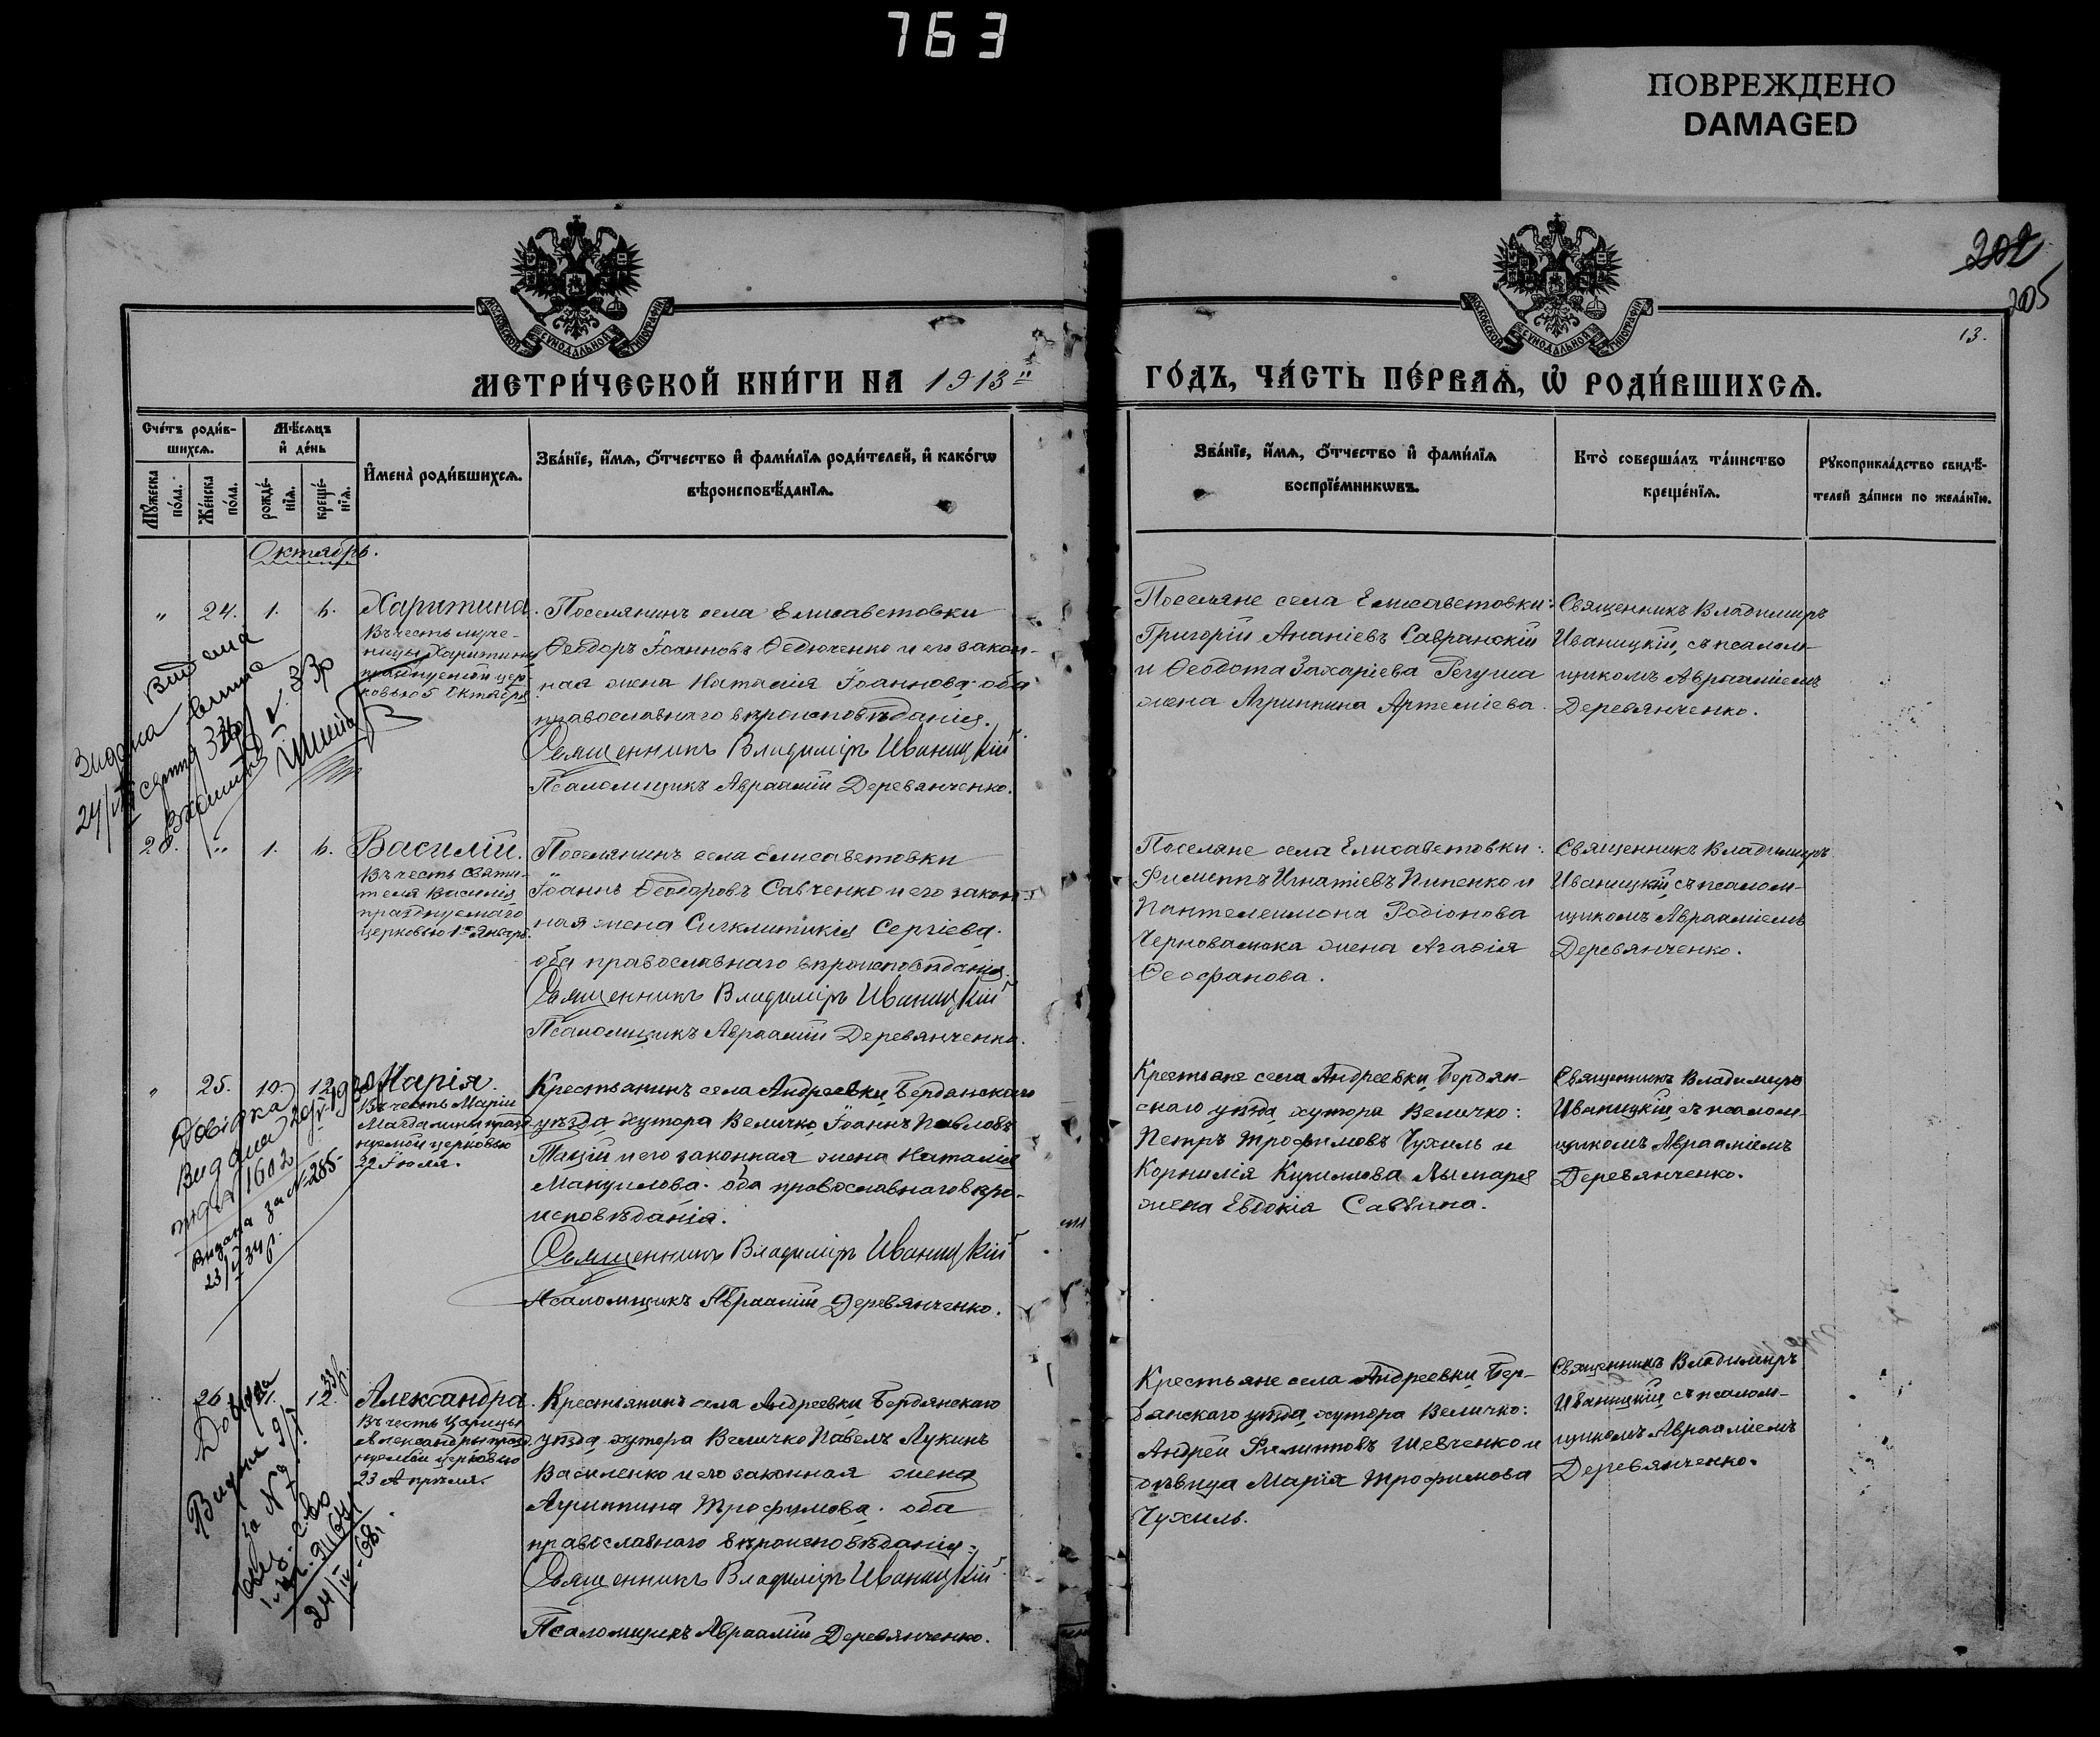 763
ПОВРЕЖДЕНО
DAMAGED
202
205
13.
МОСКОВСКОЙ СѴНОДАЛЬНОЙ ТИПОГРАФІИ
МОСКОВСКОЙ СѴНОДАЛЬНОЙ ТИПОГРАФІИ
МЕТРИ́ЧЕСКОЙ КНИ́ГИ НА 1913
ГО́ДЪ, ЧА́СТЬ ПЕ́РВАѦ, Ѡ҆ РОДИ́ВШИХСѦ.
Сче́тъ роди́в-
шихсѧ.
Мѣ́сѧцъ
и҆ де́нь
Мꙋ́жеска
по́ла.
Же́нска
по́ла.
рожде́-
нїѧ.
креще́-
нїѧ.
И҆мена̀ роди́вшихсѧ.
Зва́нїе, и҆́мѧ, ѻ҆́тчество и҆ фами́лїѧ роди́телей, и҆ како́гѡ
вѣроисповѣ́данїѧ.
Зва́нїе, и҆́мѧ, ѻ҆́тчество и҆ фами́лїѧ
воспрїе́мникѡвъ.
Кто̀ соверша́лъ та́инство
креще́нїѧ.
Рꙋкоприкла́дство свидѣ́-
телей за́писи по жела́нїю.
Октябрь.
" 24. 1. 6.
Харитина.
Въ честь муче-
ницы Харитины
празднуемой цер-
ковью 5 Октября
Поселянинъ села Елисаветовки
Ѳеодоръ Іоанновъ Ѳедюченко и его закон-
ная жена Наталія Іоаннова. оба
православнаго вѣроисповѣданія.
Священникъ Владиміръ Иваницкій
Псаломщикъ Авраамій Деревянченко.
Поселяне села Елисаветовки:
Григорій Ананіевъ Савранскій
и Ѳеодота Захаріева Регуша
жена Агриппина Артеміева.
Священникъ Владимиръ
Иваницкій, съ псалом-
щикомъ Авраамiемъ
Деревянченко.
Видана
28. " 1. 6.
Василій.
Въ честь Святи-
теля Василія
празднуемаго
церковью 1го Января.
Поселянинъ села Елисаветовки
Іоаннъ Ѳеодоровъ Савченко и его закон-
ная жена Сигклитикія Сергіева.
оба православнаго вѣроисповѣданія.
Священникъ Владиміръ Иваницкій
Псаломщикъ Авраамій Деревянченко.
Поселяне села Елисаветовки:
Филиппъ Игнатіевъ Пипенко и
Пантелеимона Родіонова
жена Агафія
Ѳеофанова.
Священникъ Владимиръ
Иваницкій съ псалом-
щикомъ Авраамiемъ
Деревянченко.
" 25. 10. 12.
Марія.
Въ честь Маріи
Магдалины празд-
нуемой церковью
22 Іюля.
Крестьянинъ села Андреевки, Бердянскаго
уѣзда, хутора Величко, Іоаннъ Павловъ
и его законная жена Наталія
Мануилова. оба православнаго вѣро-
исповѣданія.
Священникъ Владиміръ Иваницкій
Псаломщикъ Авраамій Деревянченко.
Крестьяне села Андреевки, Бердян-
скаго уѣзда, хутора Величко:
Петръ Трофимовъ Чухиль и
Корнилія Кириллова Лымаря
жена Евдокія Саввина.
Священникъ Владимиръ
Иваницкій, съ псалом-
щикомъ Авраамiемъ
Деревянченко.
Довідка
Видана
1602
Видана за №285
23/ 34 р.
26. 11. 12.
Александра.
Въ честь Царицы
Александры празд-
нуемой церковью
23 Апрѣля.
Крестьянинъ села Андреевки, Бердянскаго
уѣзда, хутора Величко Павелъ Лукинъ
Василенко и его законная жена
Агриппина Трофимова. оба
православнаго вѣроисповѣданія.
Священникъ Владиміръ Иваницкій
Псаломщикъ Авраамій Деревянченко.
Крестьяне села Андреевки, Бер-
дянскаго уѣзда, хутора Величко:
Андрей Филипповъ Шевченко и
дѣвица Марія Трофимова
Чухиль.
Священникъ Владимиръ
Иваницкій съ псалом-
щикомъ Авраамiемъ
Деревянченко.
Довідка
Видана
за №
24/IV-68.